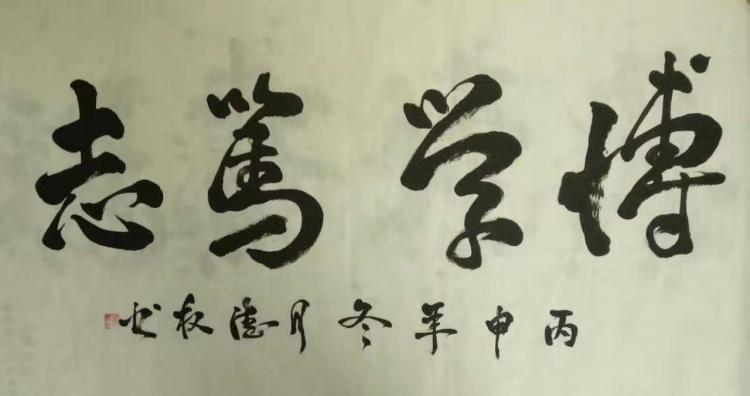 博学笃志
丙申年冬月德秋书